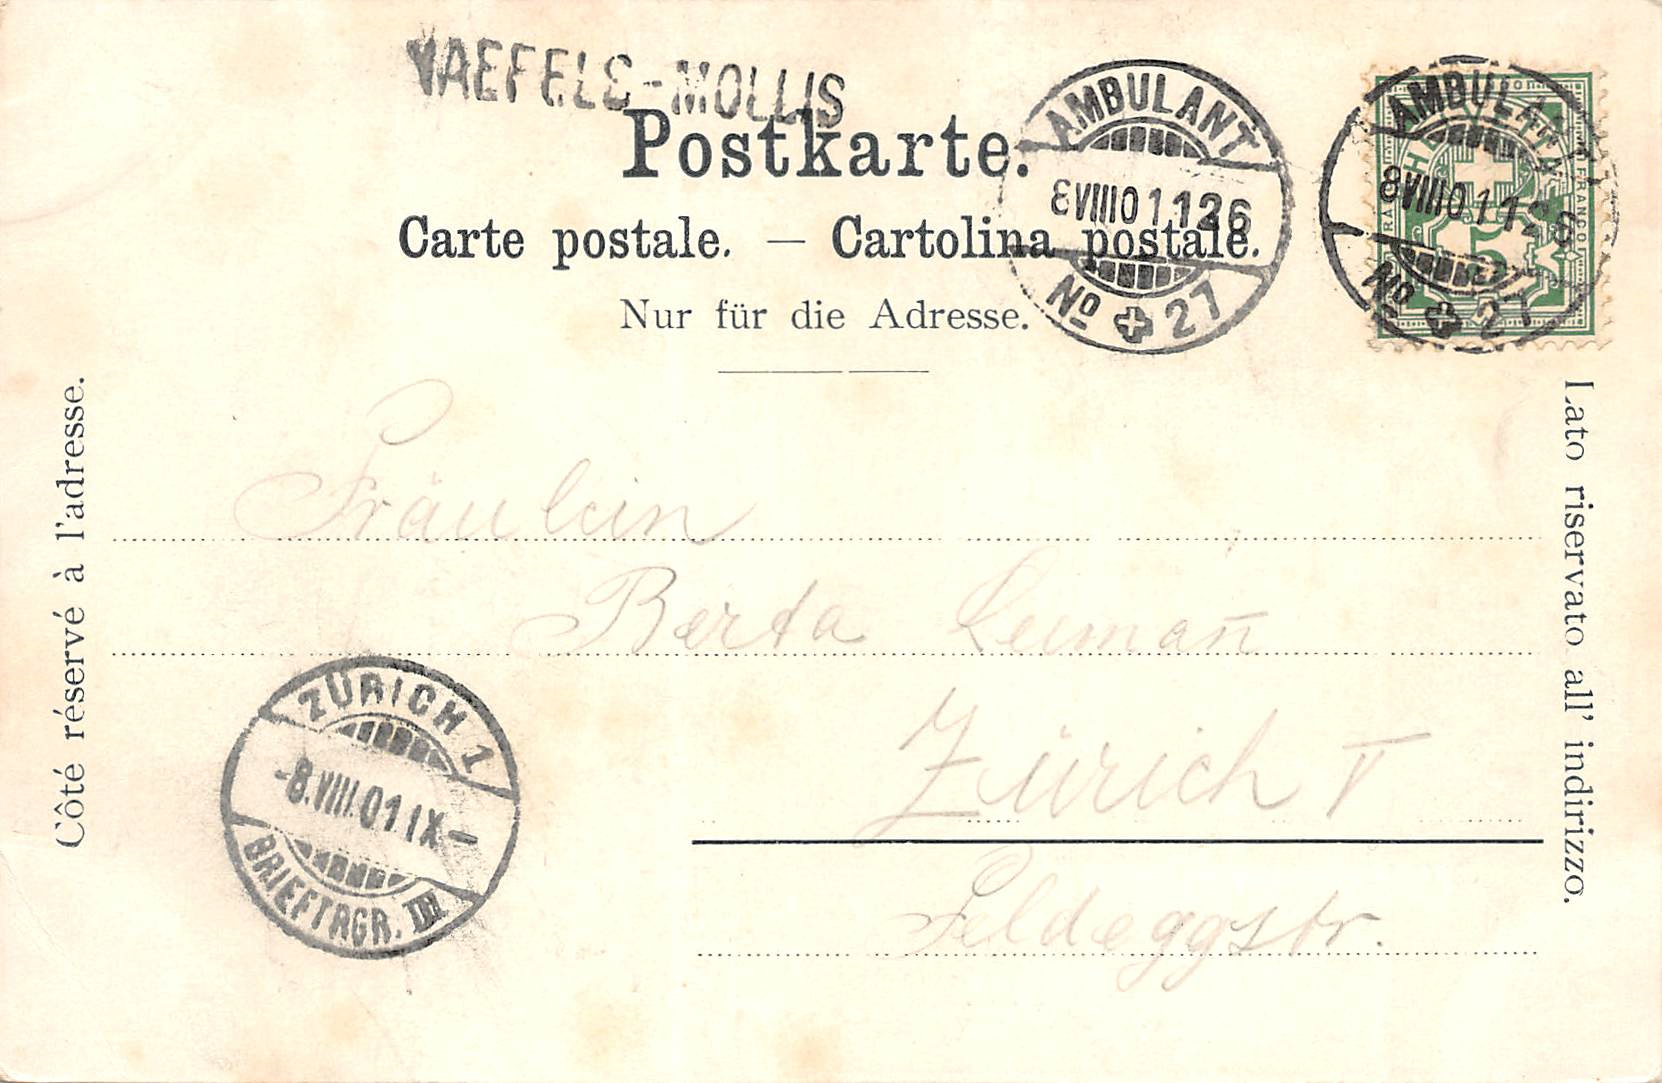 NAEFELS-MOLLIS
Postkarte.
Carte postale. — Cartolina postale.
Nur für die Adresse.
AMBULANT
8 VIII 01 126
No 27
AMBULANT
8 VIII 01 126
No 27
HELVETIA
FRANCO
5
Côté réservé à l'adresse.
Lato riservato all' indirizzo.
Fräulein
Berta Leiman̄
Zürich V
Feldeggstr.
ZÜRICH 1
-8.VIII.01.IX-
BRIEFTRGR. III